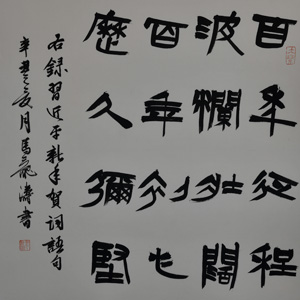 百年征程
波瀾壯闊
百年初心
歷久彌堅
右錄習近平新年賀詞語句
辛丑亥月馬龍濤書